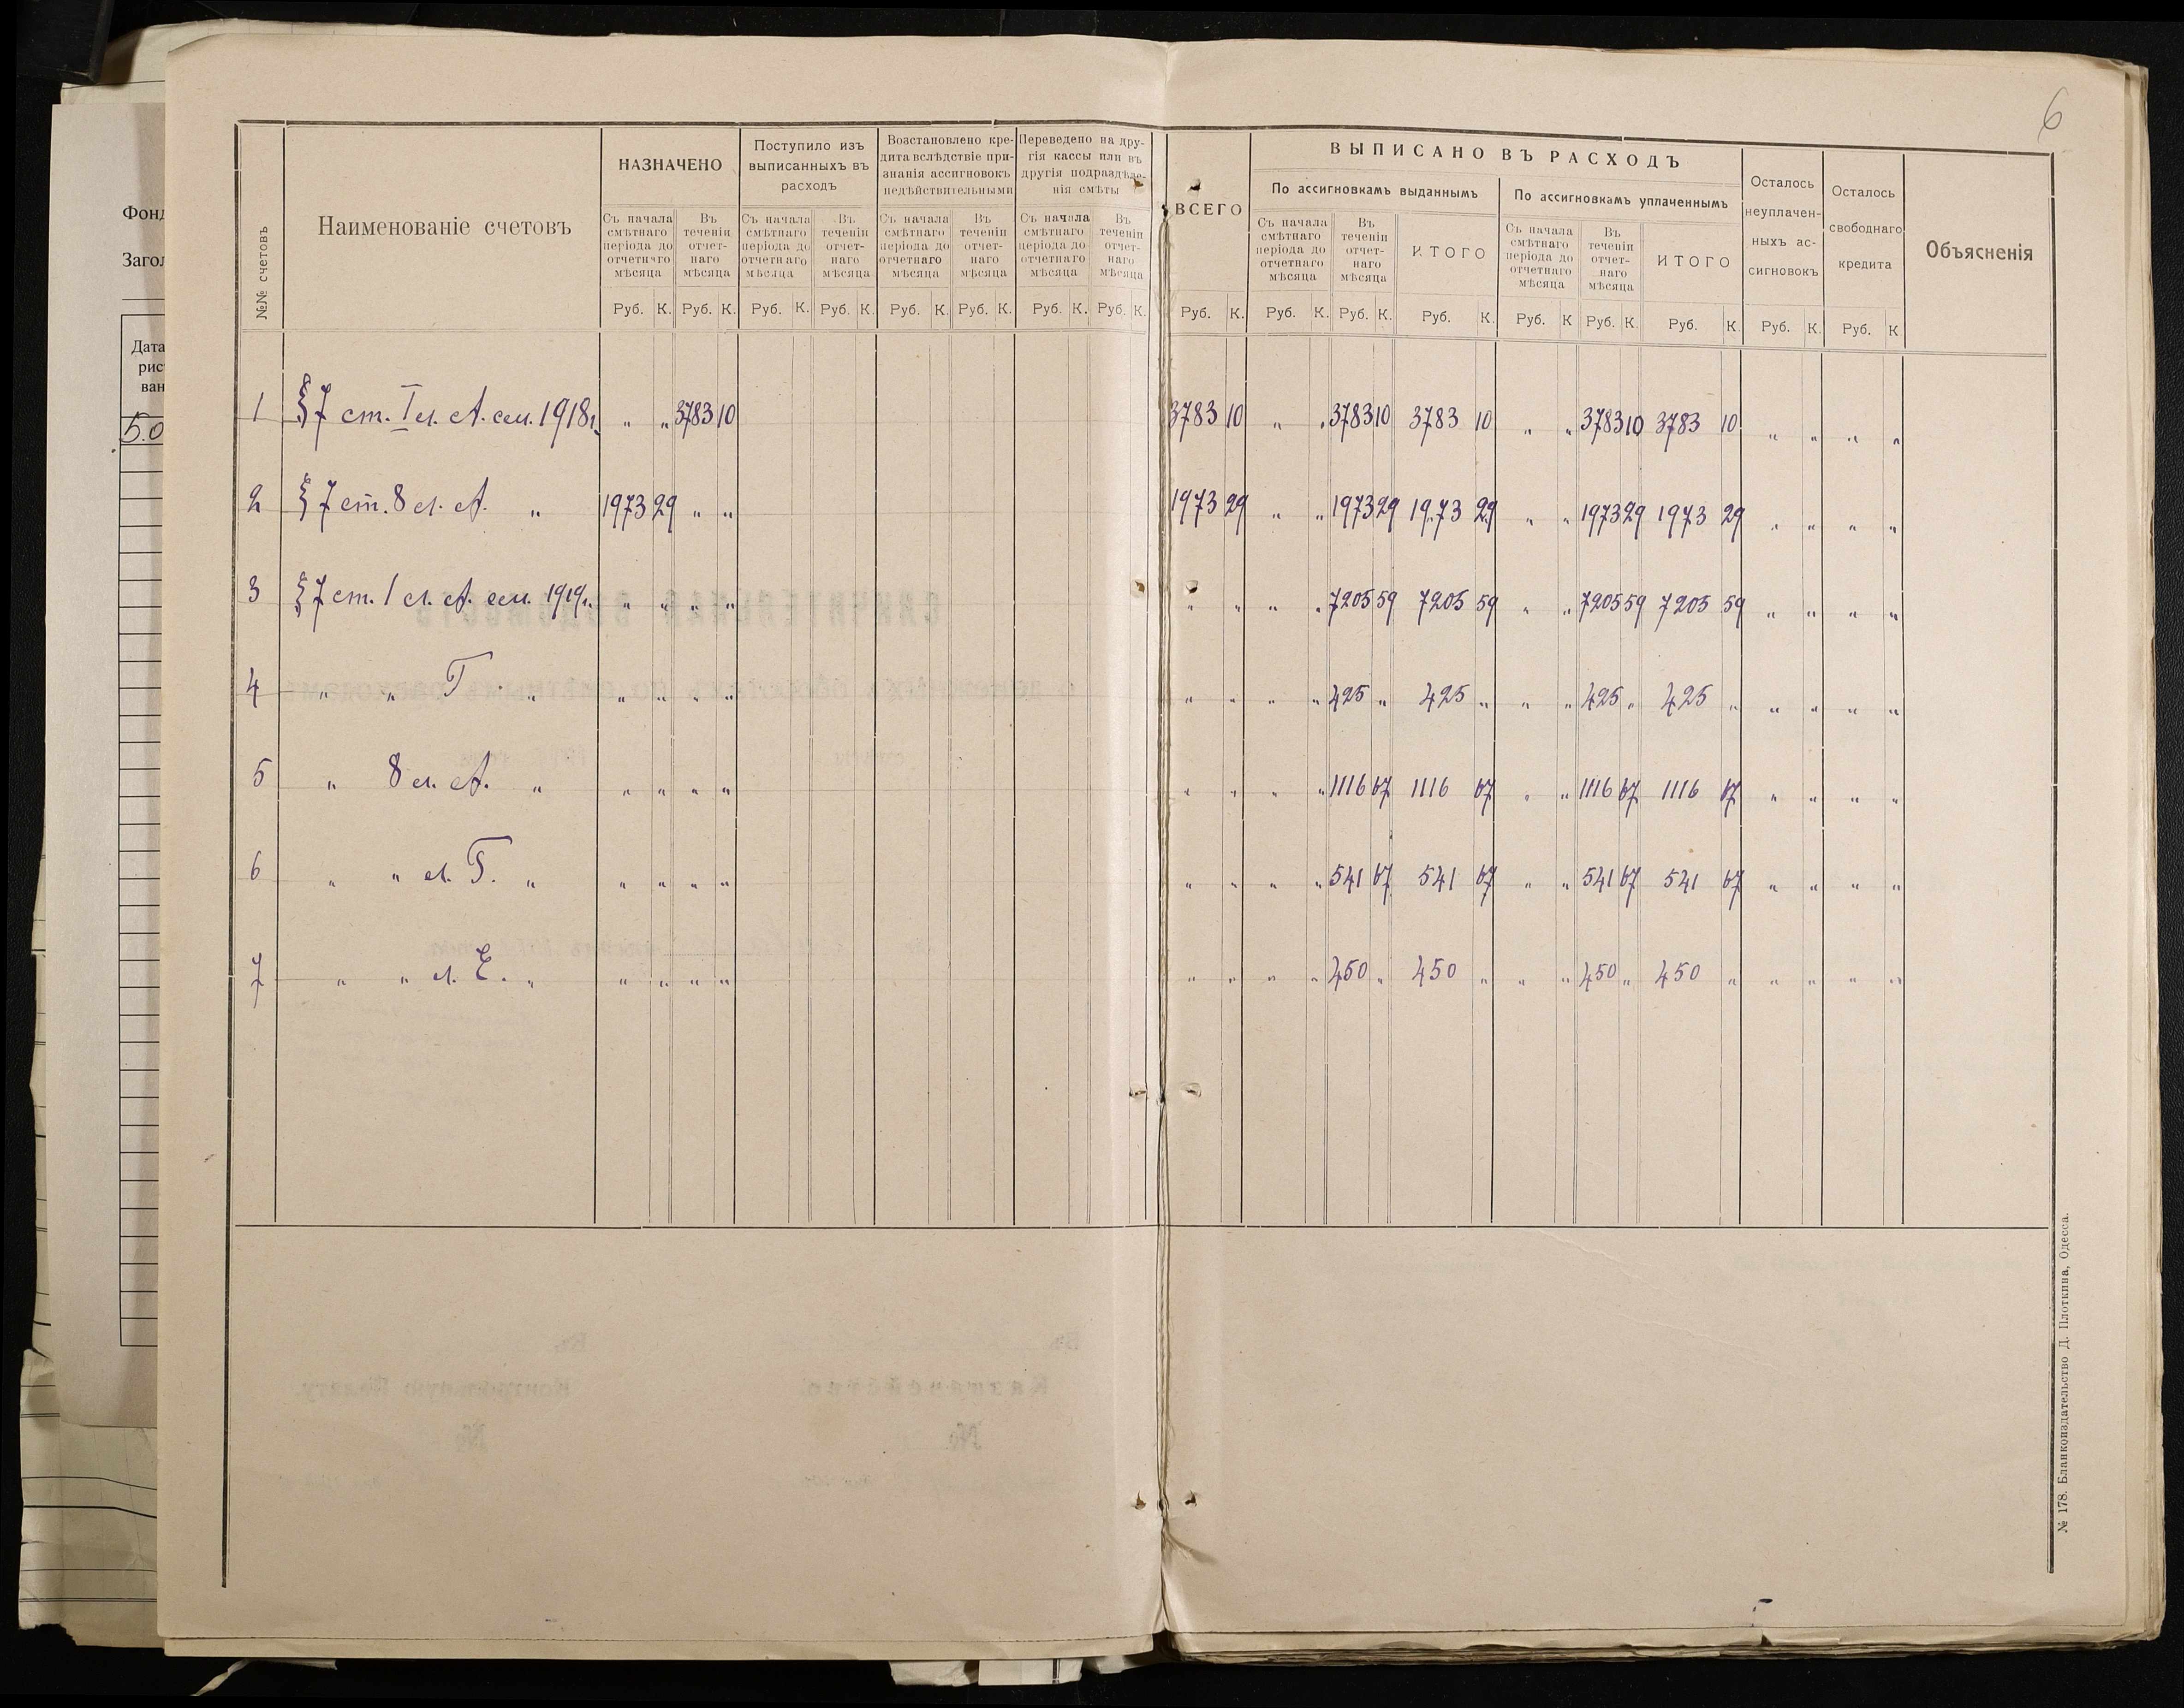 6
Фонд
Загол
Дата
рис
ван
5.0
№№ счетовъ
Наименованіе счетовъ
НАЗНАЧЕНО
Поступило изъ
выписанныхъ въ
расходъ
Возстановлено кре-
дита вслѣдствіе при-
знанія ассигновокъ
недѣйствительными
Переведено на дру-
гія кассы или въ
другія подраздѣле-
нія смѣты
ВСЕГО
ВЫПИСАНО ВЪ РАСХОДЪ
По ассигновкамъ выданнымъ
По ассигновкамъ уплаченнымъ
Осталось
неуплачен-
ныхъ ас-
сигновокъ
Осталось
свободнаго
кредита
Объясненія
Съ начала
смѣтнаго
періода до
отчетнаго
мѣсяца
Въ
теченіи
отчет-
наго
мѣсяца
Съ начала
смѣтнаго
періода до
отчетнаго
мѣсяца
Въ
теченіи
отчет-
наго
мѣсяца
Съ начала
смѣтнаго
періода до
отчетнаго
мѣсяца
Въ
теченіи
отчет-
наго
мѣсяца
Съ начала
смѣтнаго
періода до
отчетнаго
мѣсяца
Въ
теченіи
отчет-
наго
мѣсяца
Съ начала
смѣтнаго
періода до
отчетнаго
мѣсяца
Въ
теченіи
отчет-
наго
мѣсяца
ИТОГО
Съ начала
смѣтнаго
періода до
отчетнаго
мѣсяца
Въ
теченіи
отчет-
наго
мѣсяца
ИТОГО
Руб. К. Руб. К. Руб. К. Руб. К. Руб. К. Руб. К. Руб. К. Руб. К. Руб. К. Руб. К. Руб. К. Руб. К. Руб. К Руб. К. Руб. К. Руб. К. Руб. К
1 § 7 ст. I л. А. см. 1918г. " " 3783 10 3783 10 " " 3783 10 3783 10 " " 3783 10 3783 10 " " " "
2 § 7 ст. 8 л. А. " 1973 29 " " 1973 29 " " 1973 29 1973 29 " " 1973 29 1973 29 " " " "
3 § 7 ст. 1 л. А. см. 1919г. " " " " " " " " 7205 59 7205 59 " " 7205 59 7205 59 " " " "
4 " " Г " " " " " " " " " 425 " 425 " " " 425 " 425 " " " " "
5 " 8 л. А. " " " " " " " " " 1116 67 1116 67 " " 1116 67 1116 67 " " " "
6 " " л. Г. " " " " " " " " " 541 67 541 67 " " 541 67 541 67 " " " "
7 " " л. Е. " " " " " " " " " 450 " 450 " " " 450 " 450 " " " " "
№ 178. Бланкоиздательство Д. Плоткина, Одесса.